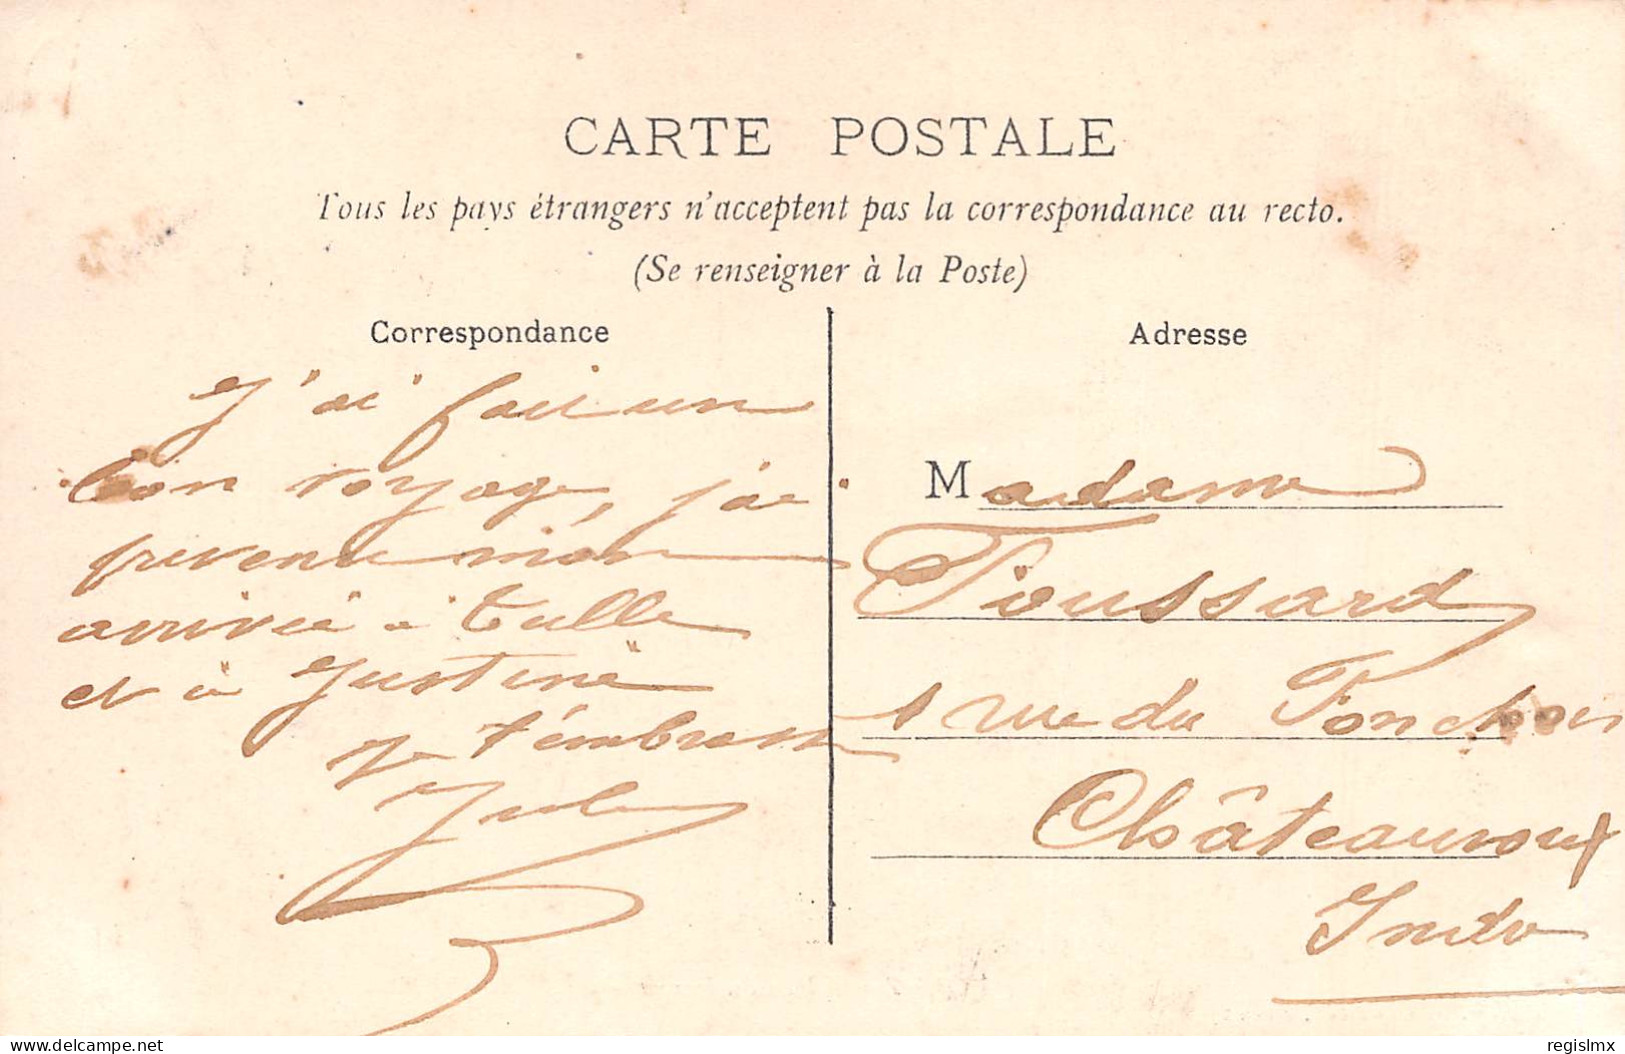 CARTE POSTALE
Tous les pays étrangers n'acceptent pas la correspondance au recto.
(Se renseigner à la Poste)
Correspondance
J'ai fait un
bon voyage, j'ai
prevenu mon
arrivée à Tulle
et à Justine
Je t'embrasse
Jules
Adresse
Madame
Toussard
rue du
Châteauroux
Indre
www.delcampe.net
regislmx